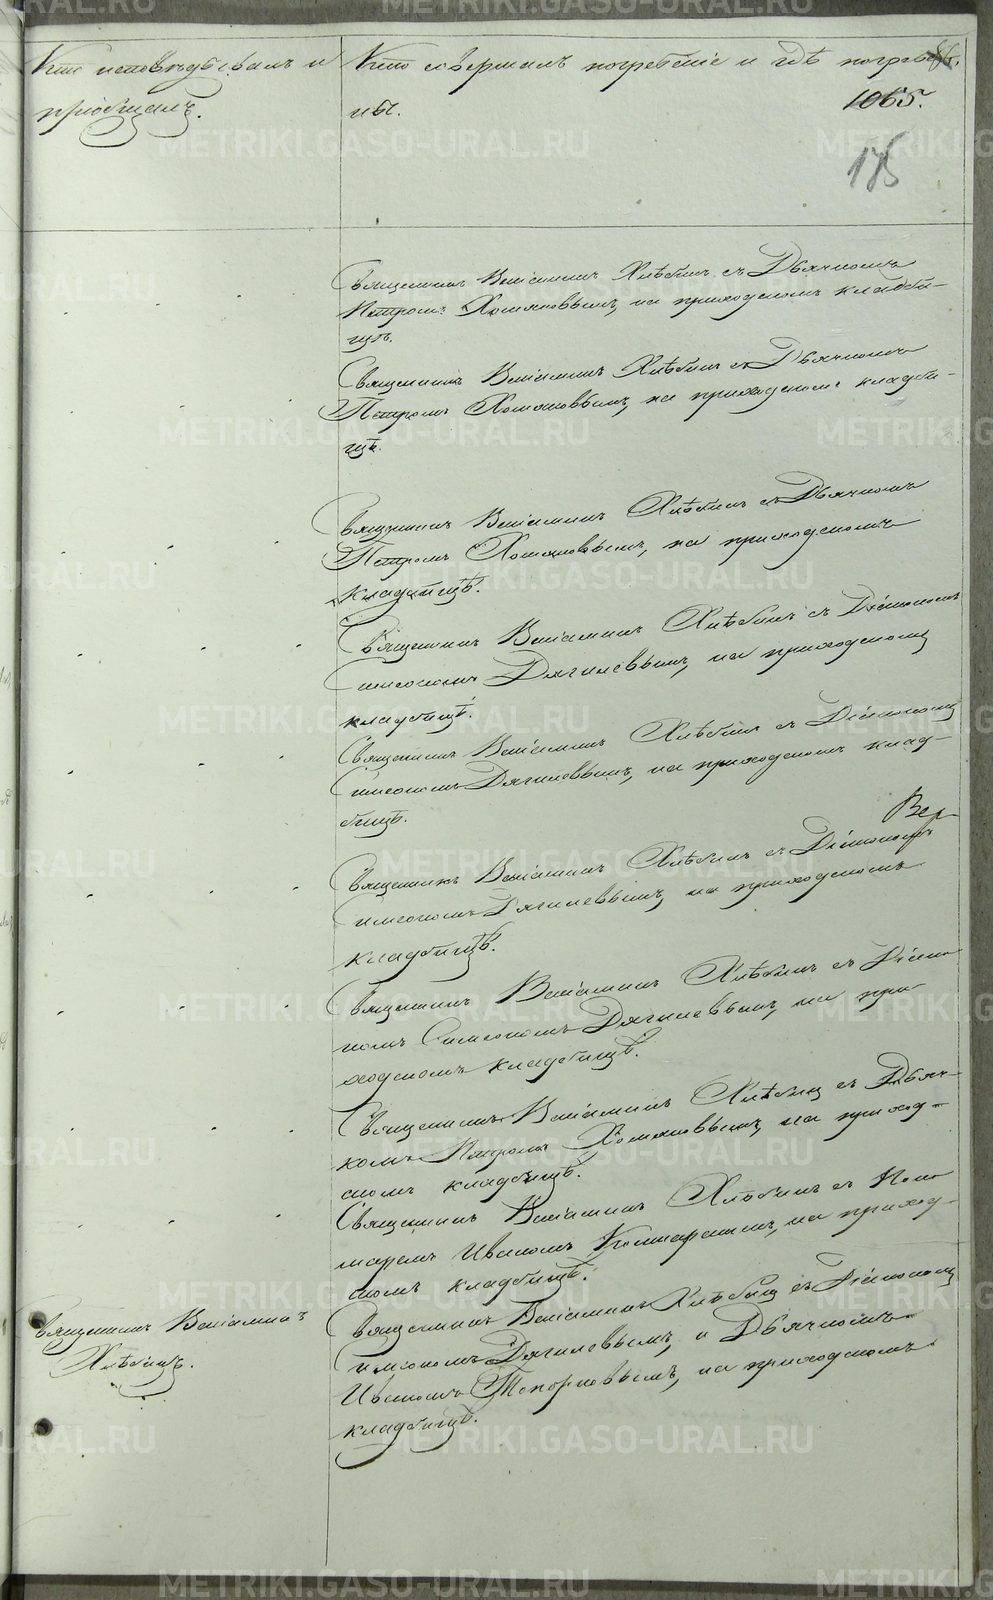 Кто исповѣдывалъ и
пріобщалъ.
Кто совершалъ погребеніе и гдѣ погребе-
ны.
1065.
175
Священникъ Веніаминъ Хлѣбинъ съ Дьячкомъ
Петромъ Хомяковымъ, на приходскомъ кладби-
щѣ.
Священникъ Веніаминъ Хлѣбинъ съ Дьячкомъ
Петромъ Хомяковымъ, на приходскомъ кладби-
щѣ.
Священникъ Веніаминъ Хлѣбинъ съ Дьячкомъ
Петромъ Хомяковымъ, на приходскомъ
кладбищѣ.
Священникъ Веніаминъ Хлѣбинъ съ Діакономъ
Симеономъ Дягилевымъ, на приходскомъ
кладбищѣ.
Священникъ Веніаминъ Хлѣбинъ съ Діакономъ
Симеономъ Дягилевымъ, на приходскомъ клад-
бищѣ.
Вер
Священникъ Веніаминъ Хлѣбинъ съ Діакономъ
Симеономъ Дягилевымъ, на приходскомъ
кладбищѣ.
Священникъ Веніаминъ Хлѣбинъ съ Діако-
номъ Симеономъ Дягилевымъ, на при-
ходскомъ кладбищѣ.
Священникъ Веніаминъ Хлѣбинъ съ Дьяч-
комъ Петромъ Хомяковымъ, на приход-
скомъ кладбищѣ.
Священникъ Веніаминъ Хлѣбинъ съ Поно-
маремъ Иваномъ на приход-
скомъ кладбищѣ.
Священникъ Веніаминъ
Хлѣбинъ.
Священникъ Веніаминъ Хлѣбинъ съ Діакономъ
Симеономъ Дягилевымъ, и Дьячкомъ
Иваномъ Топорковымъ, на приходскомъ
кладбищѣ.
METRIKI.GASO-URAL.RU